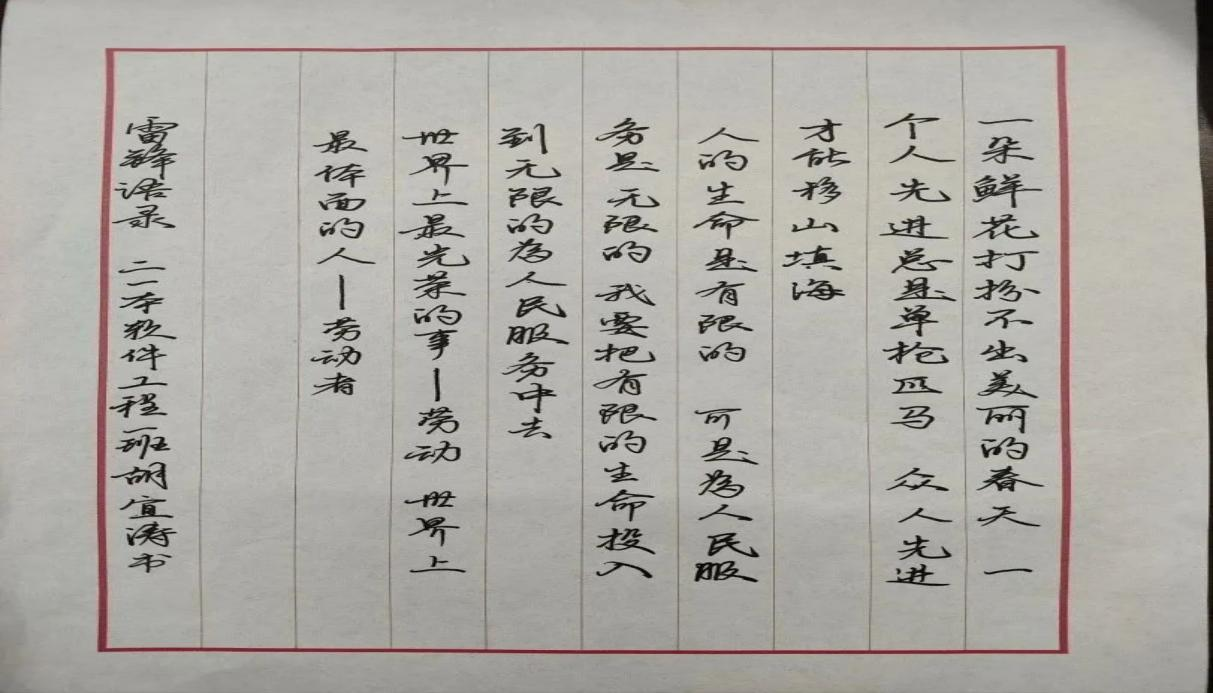 一朵鲜花打扮不出美丽的春天 一
个人先进总是单枪匹马 众人先进
才能移山填海
人的生命是有限的 可是为人民服
务是无限的 我要把有限的生命投入
到无限的为人民服务中去
世界上最光荣的事—劳动 世界上
最体面的人—劳动者
雷锋语录 二一本软件工程一班胡宣涛书